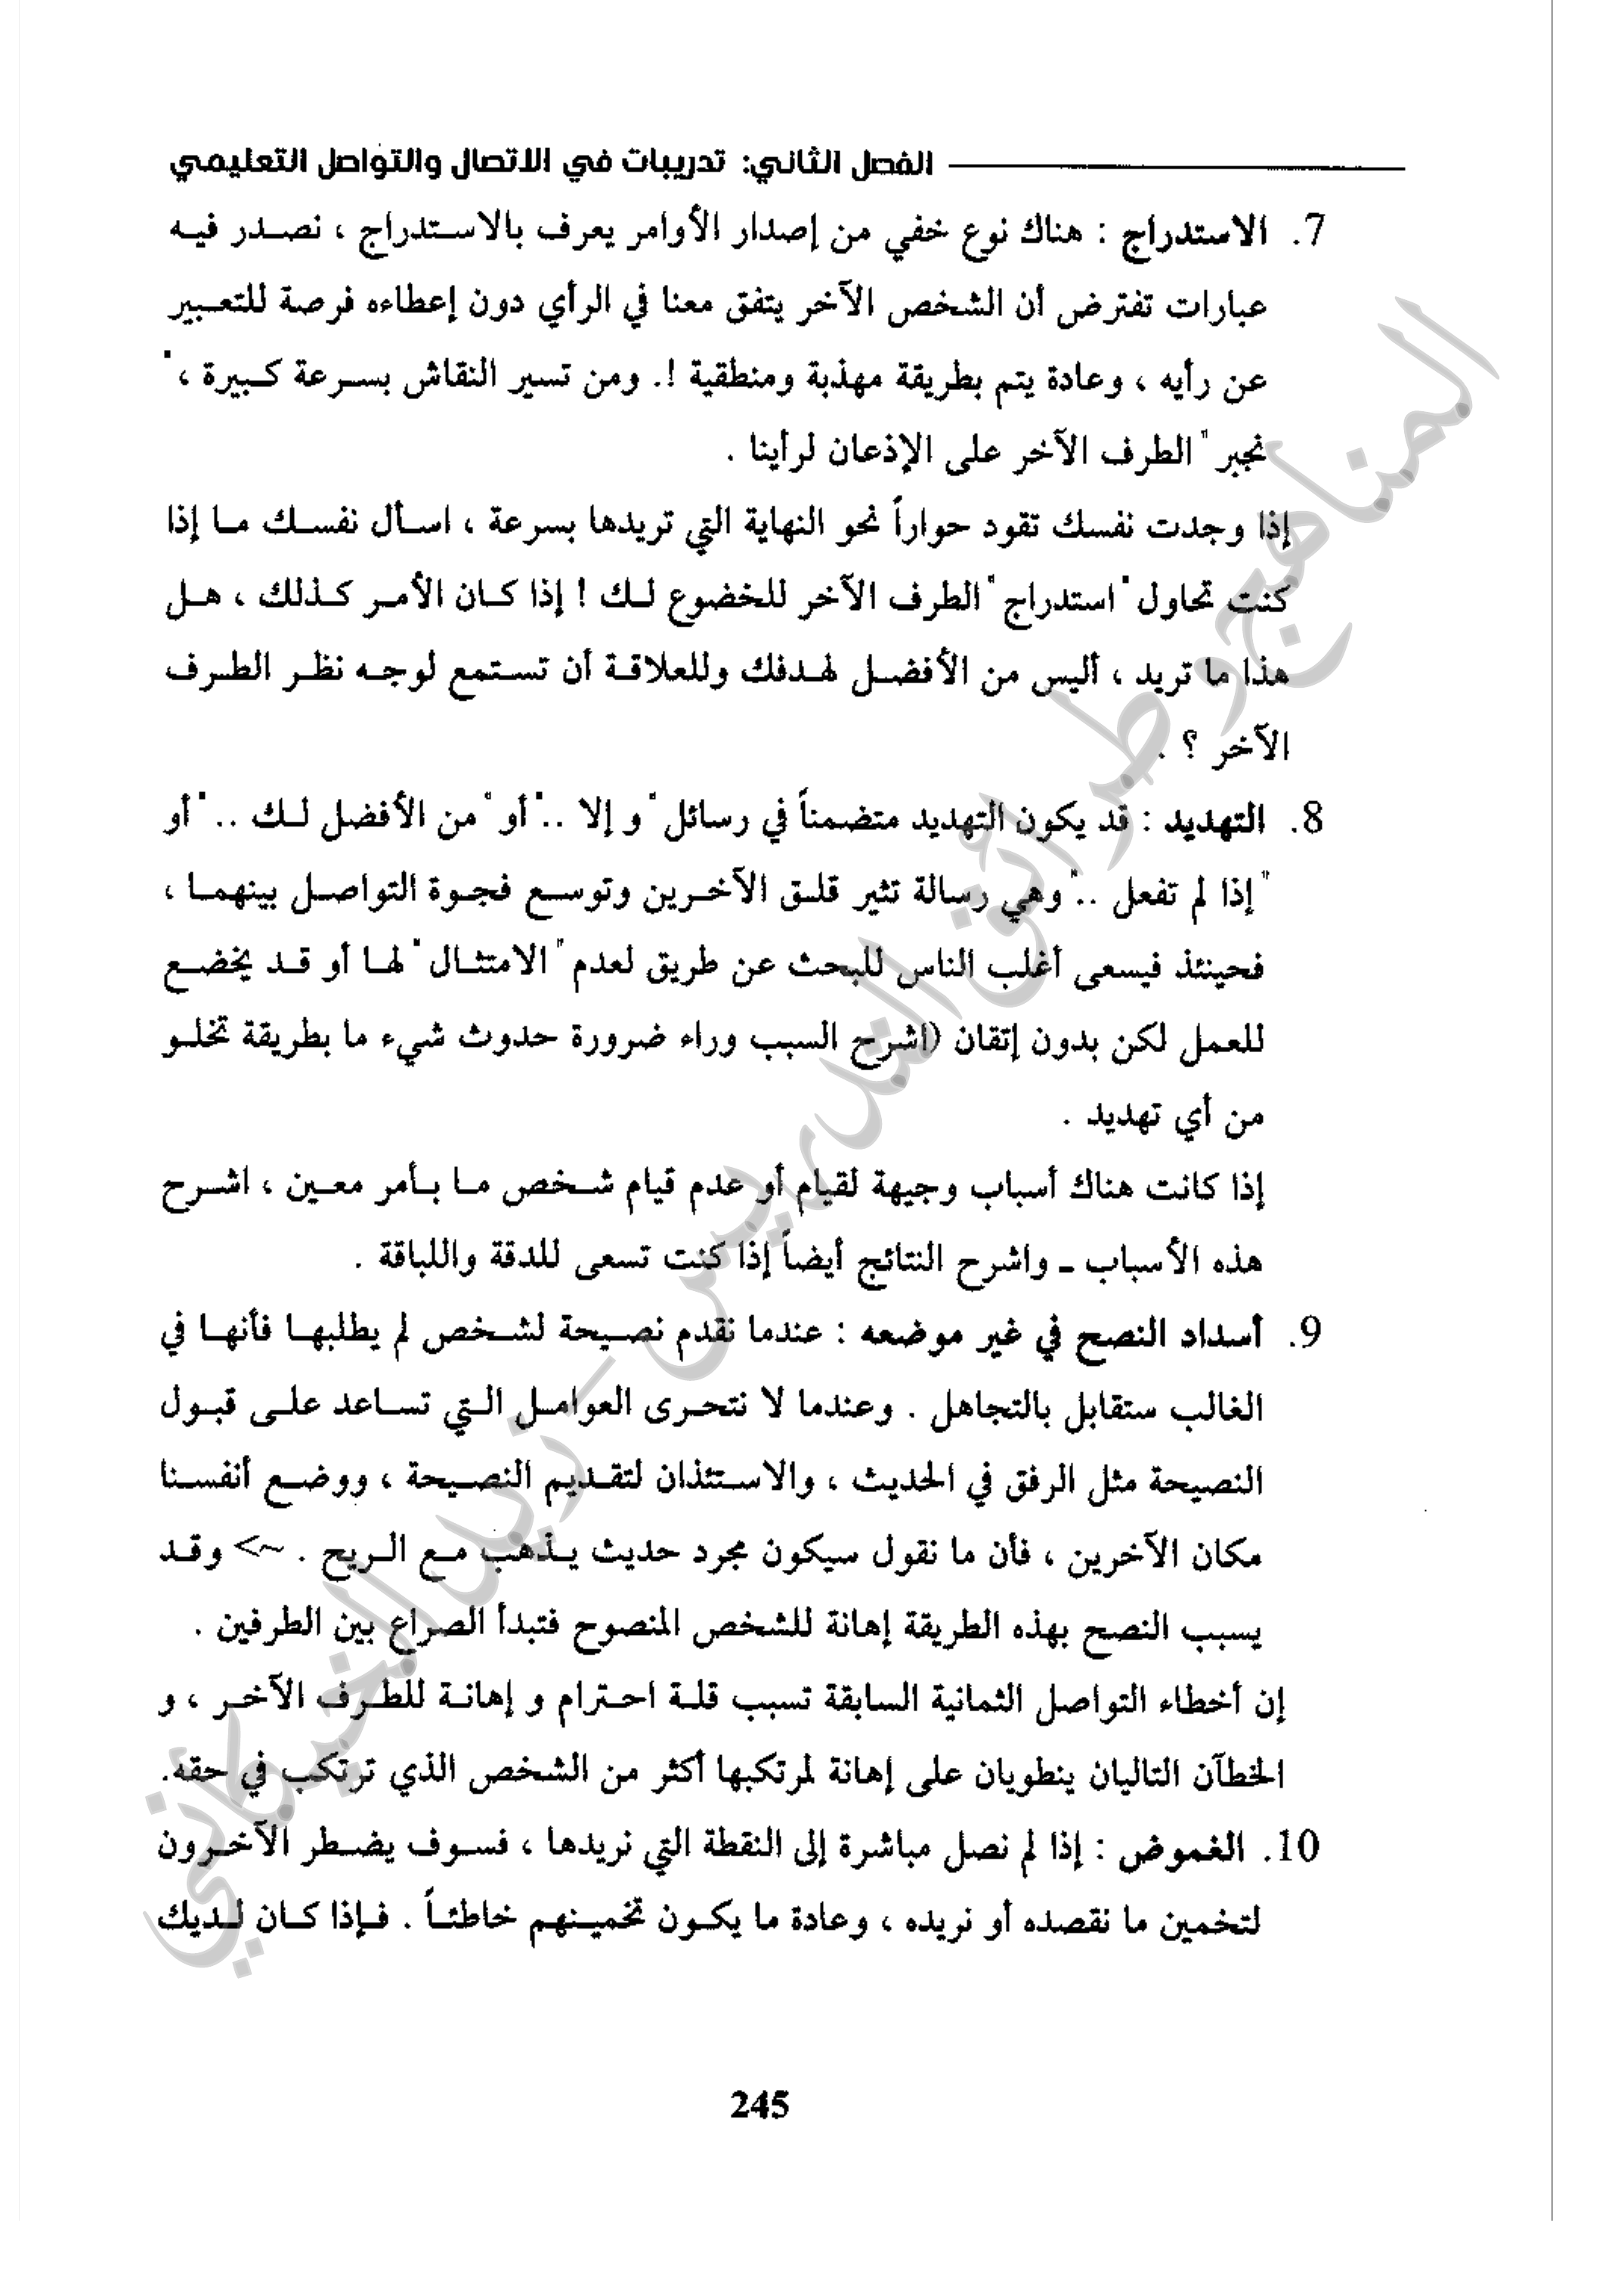 الفصل الثاني: تدريبات في الاتصال والتواصل التعليمي
7. الاستدراج : هناك نوع خفي من إصدار الأوامر يعرف بالاستدراج ، نصدر فيه
عبارات تفترض أن الشخص الآخر يتفق معنا في الرأي دون إعطاءه فرصة للتعبير
عن رأيه ، وعادة يتم بطريقة مهذبة ومنطقية !. ومن تسير النقاش بسرعة كبيرة ، "
نجبر" الطرف الآخر على الإذعان لرأينا .
إذا وجدت نفسك تقود حواراً نحو النهاية التي تريدها بسرعة ، اسأل نفسك ما إذا
كنت تحاول "استدراج" الطرف الآخر للخضوع لك ! إذا كان الأمر كذلك ، هل
هذا ما تريد ، أليس من الأفضل لهدفك وللعلاقة أن تستمع لوجه نظر الطرف
الآخر ؟ .
8. التهديد : قد يكون التهديد متضمناً في رسائل "و إلا .." أو "من الأفضل لك .." أو
"إذا لم تفعل .." وهي رسالة تثير قلق الآخرين وتوسع فجوة التواصل بينهما ،
فحينئذ فيسعى أغلب الناس للبحث عن طريق لعدم "الامتثال" لها أو قد يخضع
للعمل لكن بدون إتقان (اشرح السبب وراء ضرورة حدوث شيء ما بطريقة تخلو
من أي تهديد .
إذا كانت هناك أسباب وجيهة لقيام أو عدم قيام شخص ما بأمر معين ، اشرح
هذه الأسباب ـ واشرح النتائج أيضاً إذا كنت تسعى للدقة واللباقة .
9. أسداد النصح في غير موضعه : عندما نقدم نصيحة لشخص لم يطلبها فأنها في
الغالب ستقابل بالتجاهل . وعندما لا نتحرى العوامل التي تساعد على قبول
النصيحة مثل الرفق في الحديث ، والاستئذان لتقديم النصيحة ، ووضع أنفسنا
مكان الآخرين ، فأن ما نقول سيكون مجرد حديث يذهب مع الريح . ~> وقد
يسبب النصح بهذه الطريقة إهانة للشخص المنصوح فتبدأ الصراع بين الطرفين .
إن أخطاء التواصل الثمانية السابقة تسبب قلة احترام و إهانة للطرف الآخر ، و
الخطآن التاليان ينطويان على إهانة لمرتكبها أكثر من الشخص الذي ترتكب في حقه.
10. الغموض : إذا لم نصل مباشرة إلى النقطة التي نريدها ، فسوف يضطر الآخرون
لتخمين ما نقصده أو نريده ، وعادة ما يكون تخمينهم خاطئاً . فإذا كان لديك
245
المناهج و طرائق التدريس - زيد الخيكاني